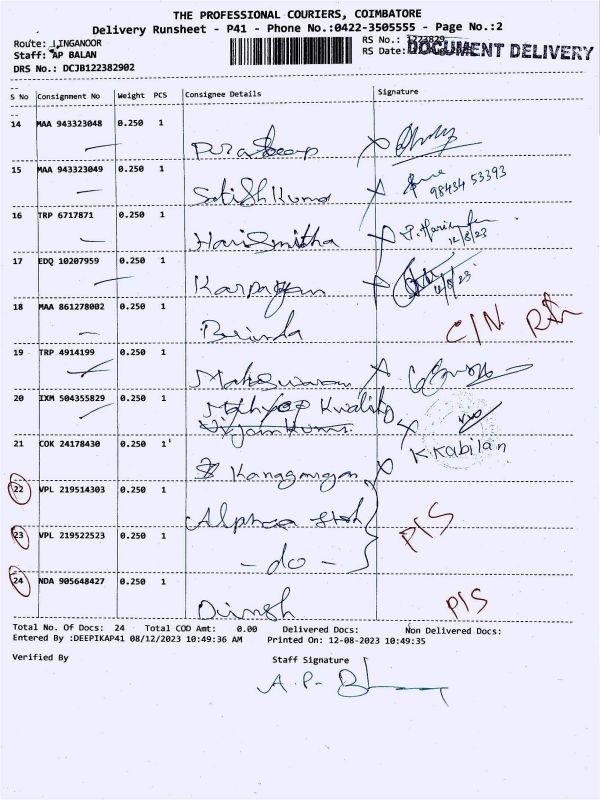 THE PROFESSIONAL COURIERS, COIMBATORE
Delivery Runsheet - P41 - Phone No.:0422-3505555 - Page No.:2
Route: LINGANOOR
RS No.: 1223829
Staff: AP BALAN
RS Date:
DOCUMENT DELIVERY
DRS No.: DCJB122382902
S No Consignment No Weight PCS Consignee Details Signature
14 MAA 943323048 0.250 1
15 MAA 943323049 0.250 1
SatishKumar 98434 53393
16 TRP 6717871 0.250 1
Harismitha 12/8/23
17 EDQ 10207959 0.250 1
12/8/23
18 MAA 861278002 0.250 1
Brinda C/N
19 TRP 4914199 0.250 1
Maheswaran
20 IXM 504355829 0.250 1
Kwality
K.Kabilan
21 COK 24178430 0.250 1
22 VPL 219514303 0.250 1
Alphaa P/S
23 VPL 219522523 0.250 1
- do -
24 NDA 905648427 0.250 1
Dinesh P/S
Total No. Of Docs: 24 Total COD Amt: 0.00 Delivered Docs: Non Delivered Docs:
Entered By :DEEPIKAP41 08/12/2023 10:49:36 AM Printed On: 12-08-2023 10:49:35
Verified By Staff Signature
A.P.